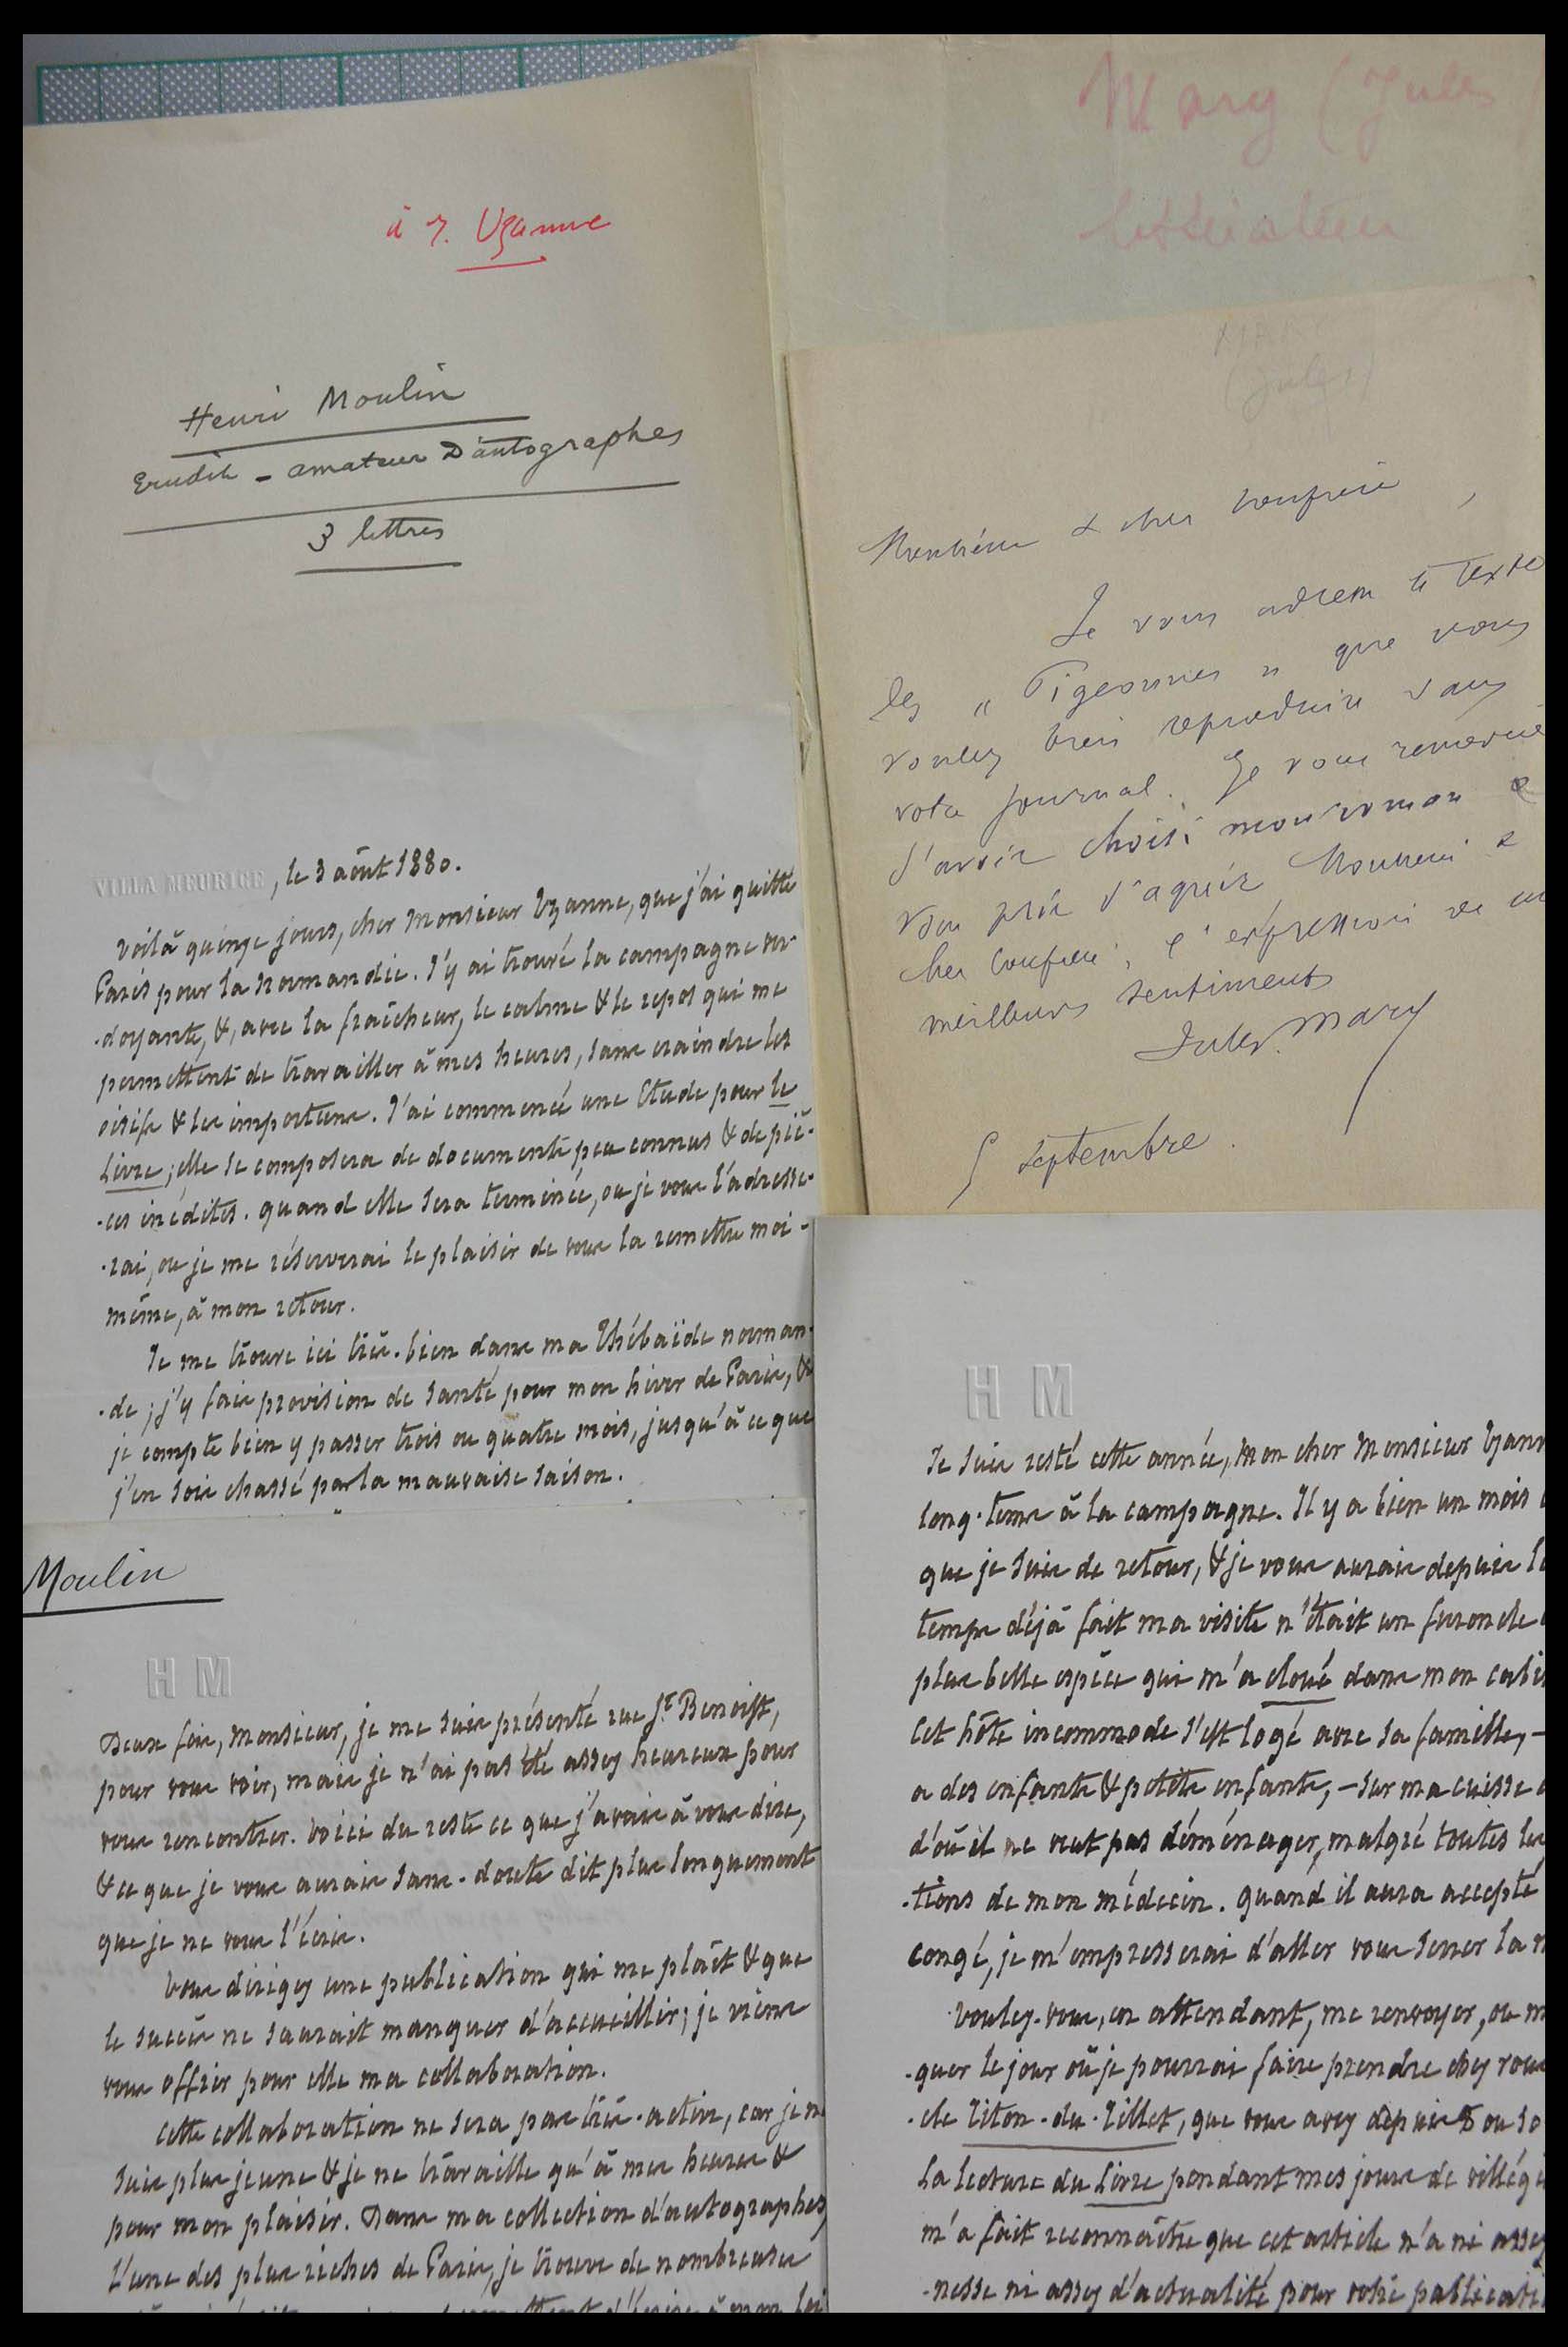 à J. Uzanne
Henri Moulin
Erudit - amateur D'autographes
3 lettres
VILLA MEURICE, le 3 août 1880.
Voilà quinze jours, cher Monsieur Uzanne, que j'ai quitté
Paris pour la Normandie. J'y ai trouvé la campagne ver-
-doyante, &, avec la fraîcheur, le calme & le repos qui me
permettent de travailler à mes heures, sans craindre les
oisifs & les importuns. J'ai commencé une Etude pour le
Livre; elle se composera de documents peu connus & de piè-
-ces inédites. quand elle sera terminée, ou je vous l'adresse-
-rai, ou je me réserverai le plaisir de vous la remettre moi-
même, à mon retour.
Je me trouve ici très-bien dans ma Thébaïde norman-
-de; j'y fais provision de santé pour mon hiver de Paris, &
je compte bien y passer trois ou quatre mois, jusqu'à ce que
j'en sois chassé par la mauvaise saison.
Moulin
H M
Deux fois, Monsieur, je me suis présenté rue St. Benoist,
pour vous voir, mais je n'ai pas été assez heureux pour
vous rencontrer. Voici du reste ce que j'avais à vous dire,
& ce que je vous aurais sans-doute dit plus longuement
que je ne vous l'écris.
Vous dirigez une publication qui me plaît & que
le succès ne saurait manquer d'accueillir; je viens
vous offrir pour elle ma collaboration.
cette collaboration ne sera pas très-active, car je n
suis plus jeune & je ne travaille qu'à mes heures &
pour mon plaisir. Dans ma collection d'autographes
l'une des plus riches de Paris, je trouve de nombreuses
Mary (Jules
littérateur
MARY
(Jules)
Monsieur & cher confrère,
Je vous adresse le texte
des "Pigeonnes" que vous
voulez bien reproduire dans
votre journal. Je vous remercie
d'avoir choisi mon roman &
vous prie d'agréer Monsieur &
cher confrère, l'expression de mes
meilleurs sentiments
Jules Mary
5 septembre.
H M
Je suis resté cette année, mon cher Monsieur Uzann
long-tems à la campagne. Il y a bien un mois
que je suis de retour, & je vous aurais depuis
temps déjà fait ma visite n'était un furoncle
plus belle espèce qui m'a cloué dans mon cabi
Cet hôte incommode s'est logé avec sa famille, —
a des enfants & petits enfants, — sur ma cuisse
d'où il ne veut pas déménager, malgré toutes les
-tions de mon médecin. quand il aura accepté
congé, je m'empresserai d'aller vous serrer la m
Voulez-vous, en attendant, me renvoyer, ou m
-quer le jour où je pourrai faire prendre chez vous
-cle Titon-du-Tillet, que vous avez depuis 8 ou 10
La lecture du Livre pendant mes jours de villégi
m'a fait reconnaître que cet article n'a ni assez
-nesse ni assez d'actualité pour votre publicati